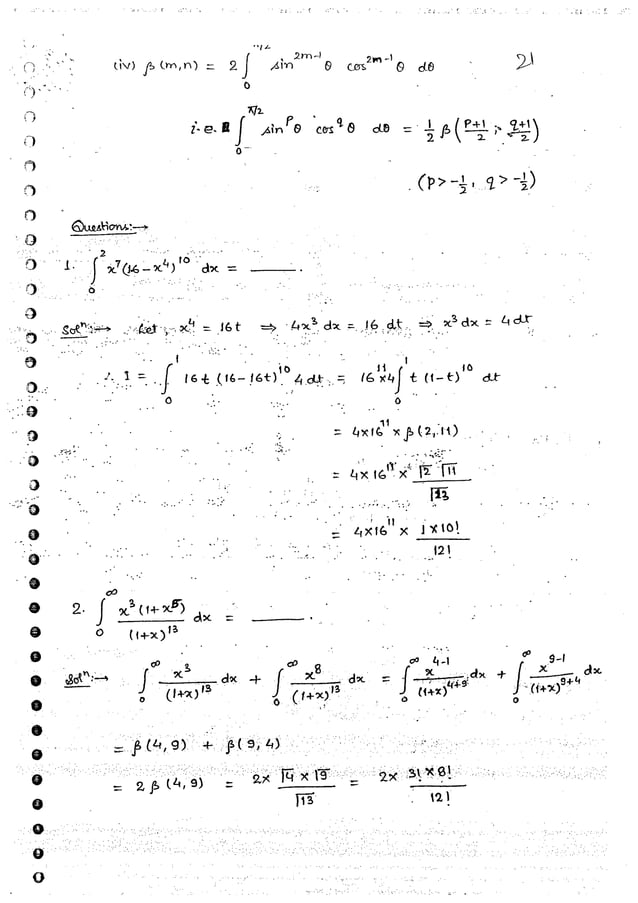 21
(iv) β(m,n) = 2 ∫₀^{π/2} sin^{2m-1} θ cos^{2m-1} θ dθ
i.e. ∫₀^{π/2} sin^p θ cos^q θ dθ = 1/2 β((p+1)/2, (q+1)/2)
(p > -1/2, q > -1/2)
Questions:→
1. ∫₀² x⁷(16-x⁴)¹⁰ dx = ____.
Solⁿ:→ Let, x⁴ = 16t ⇒ 4x³ dx = 16 dt ⇒ x³ dx = 4dt
∴ I = ∫₀¹ 16t (16-16t)¹⁰ 4dt = 16¹¹×4 ∫₀¹ t (1-t)¹⁰ dt
= 4×16¹¹ × β(2,11)
= 4×16¹¹ × (Γ2 Γ11)/Γ13
= 4×16¹¹ × (1×10!)/12!
2. ∫₀^∞ x³(1+x⁵)/(1+x)¹³ dx = ____.
Solⁿ:→ ∫₀^∞ x³/(1+x)¹³ dx + ∫₀^∞ x⁸/(1+x)¹³ dx = ∫₀^∞ x^{4-1}/(1+x)^{4+9} dx + ∫₀^∞ x^{9-1}/(1+x)^{9+4} dx
= β(4,9) + β(9,4)
= 2β(4,9) = (2×Γ4×Γ9)/Γ13 = (2×3!×8!)/12!